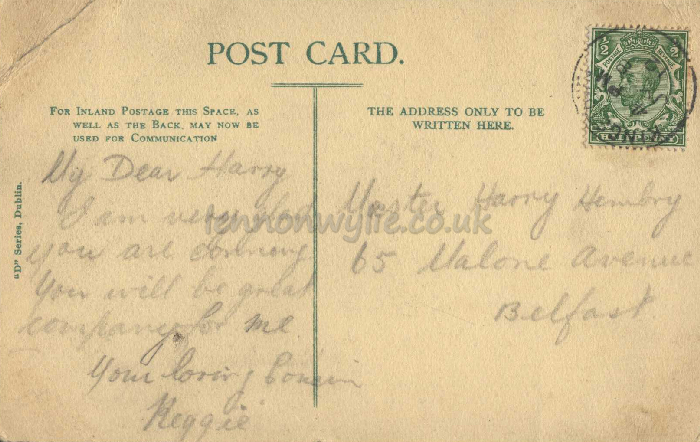 POST CARD.
FOR INLAND POSTAGE THIS SPACE, AS
WELL AS THE BACK, MAY NOW BE
USED FOR COMMUNICATION
THE ADDRESS ONLY TO BE
WRITTEN HERE.
"D" Series, Dublin.
My Dear Harry
I am very glad
you are comming
You will be great
company for me
Your loving Cousin
Reggie
Master Harry Hembry
65 Malone Avenue
Belfast
lennonwylie.co.uk